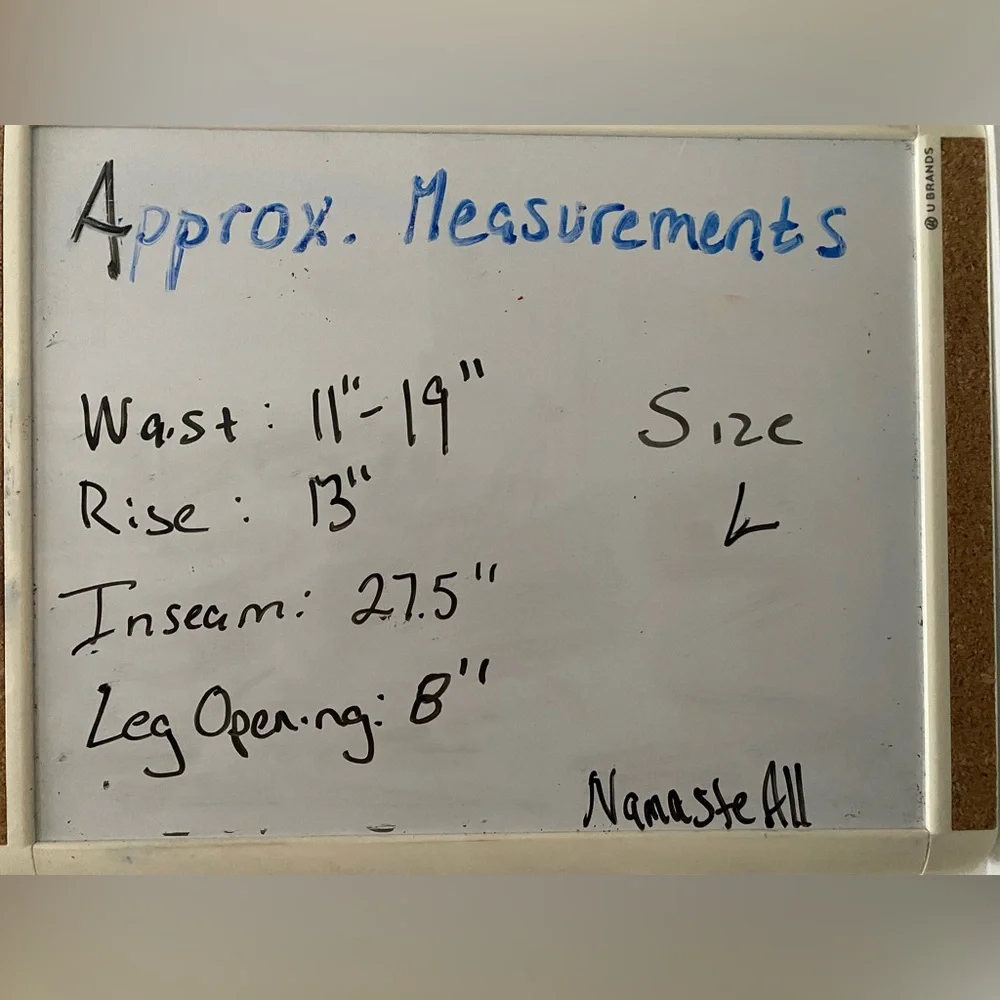 Approx. Measurements
Waist: 11"-19"
Size
Rise: 13"
L
Inseam: 27.5"
Leg Opening: 8"
Namaste All
U BRANDS